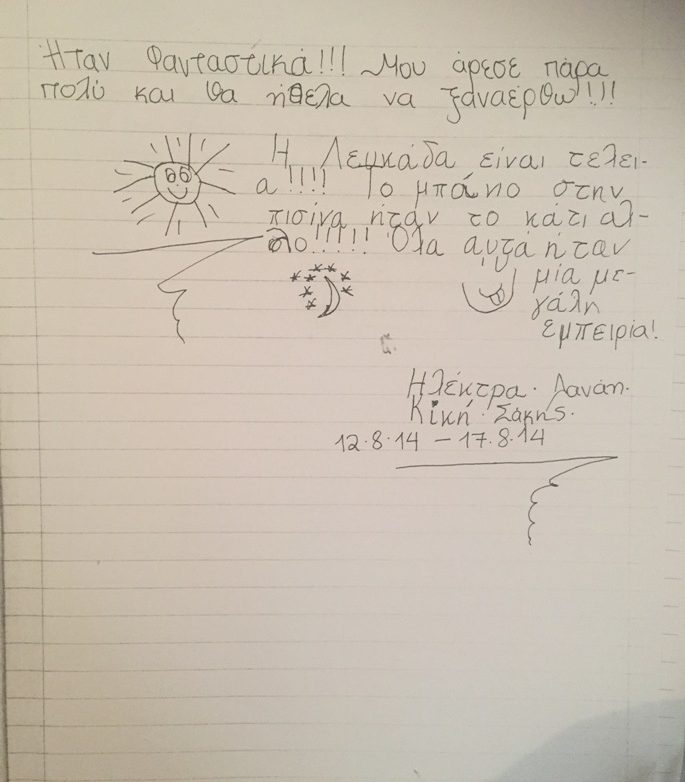 Ήταν Φανταστικά!!! Μου άρεσε πάρα
πολύ και θα ήθελα να ξαναέρθω!!!
Η Λευκάδα είναι τελει-
α!!!! Το μπάνιο στην
πισίνα ήταν το κάτι αλ-
λο!!!!! Όλα αυτά ήταν
μία με-
γάλη
εμπειρία!
Ηλέκτρα. Δανάη.
Κική. Σάκης.
12.8.14 – 17.8.14